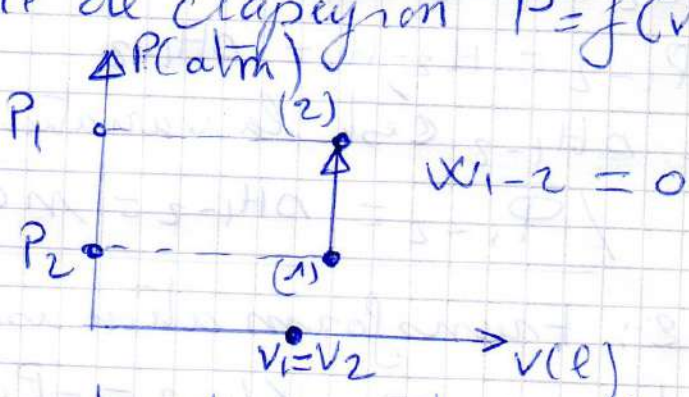 de Clapeyron P=f(v
P(atm)
P₁
(2)
W₁-₂ = 0
P₂
(1)
V₁=V₂
V(l)